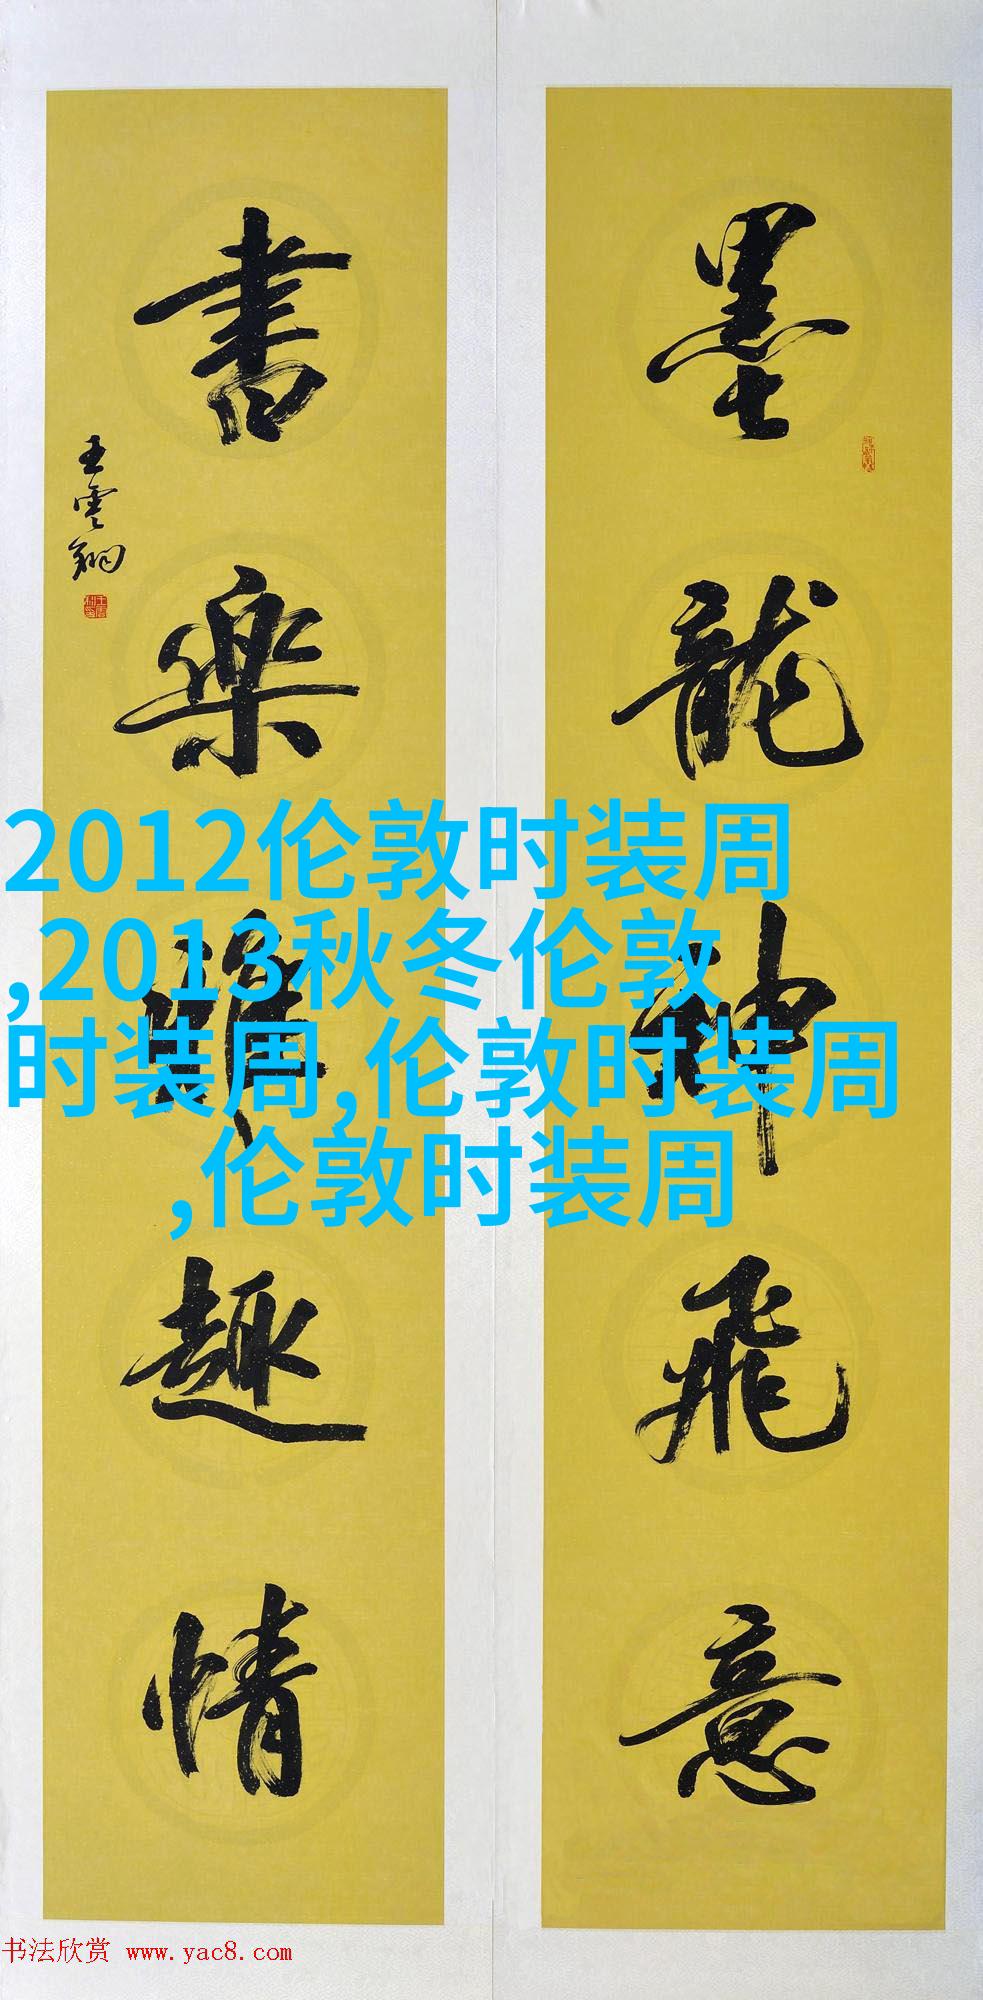 墨龍神飛意
書樂唯趣情
王雲翔
2012伦敦时装周
,2013秋冬伦敦
时装周,伦敦时装周
,伦敦时装周
书法欣赏 www.yac8.com